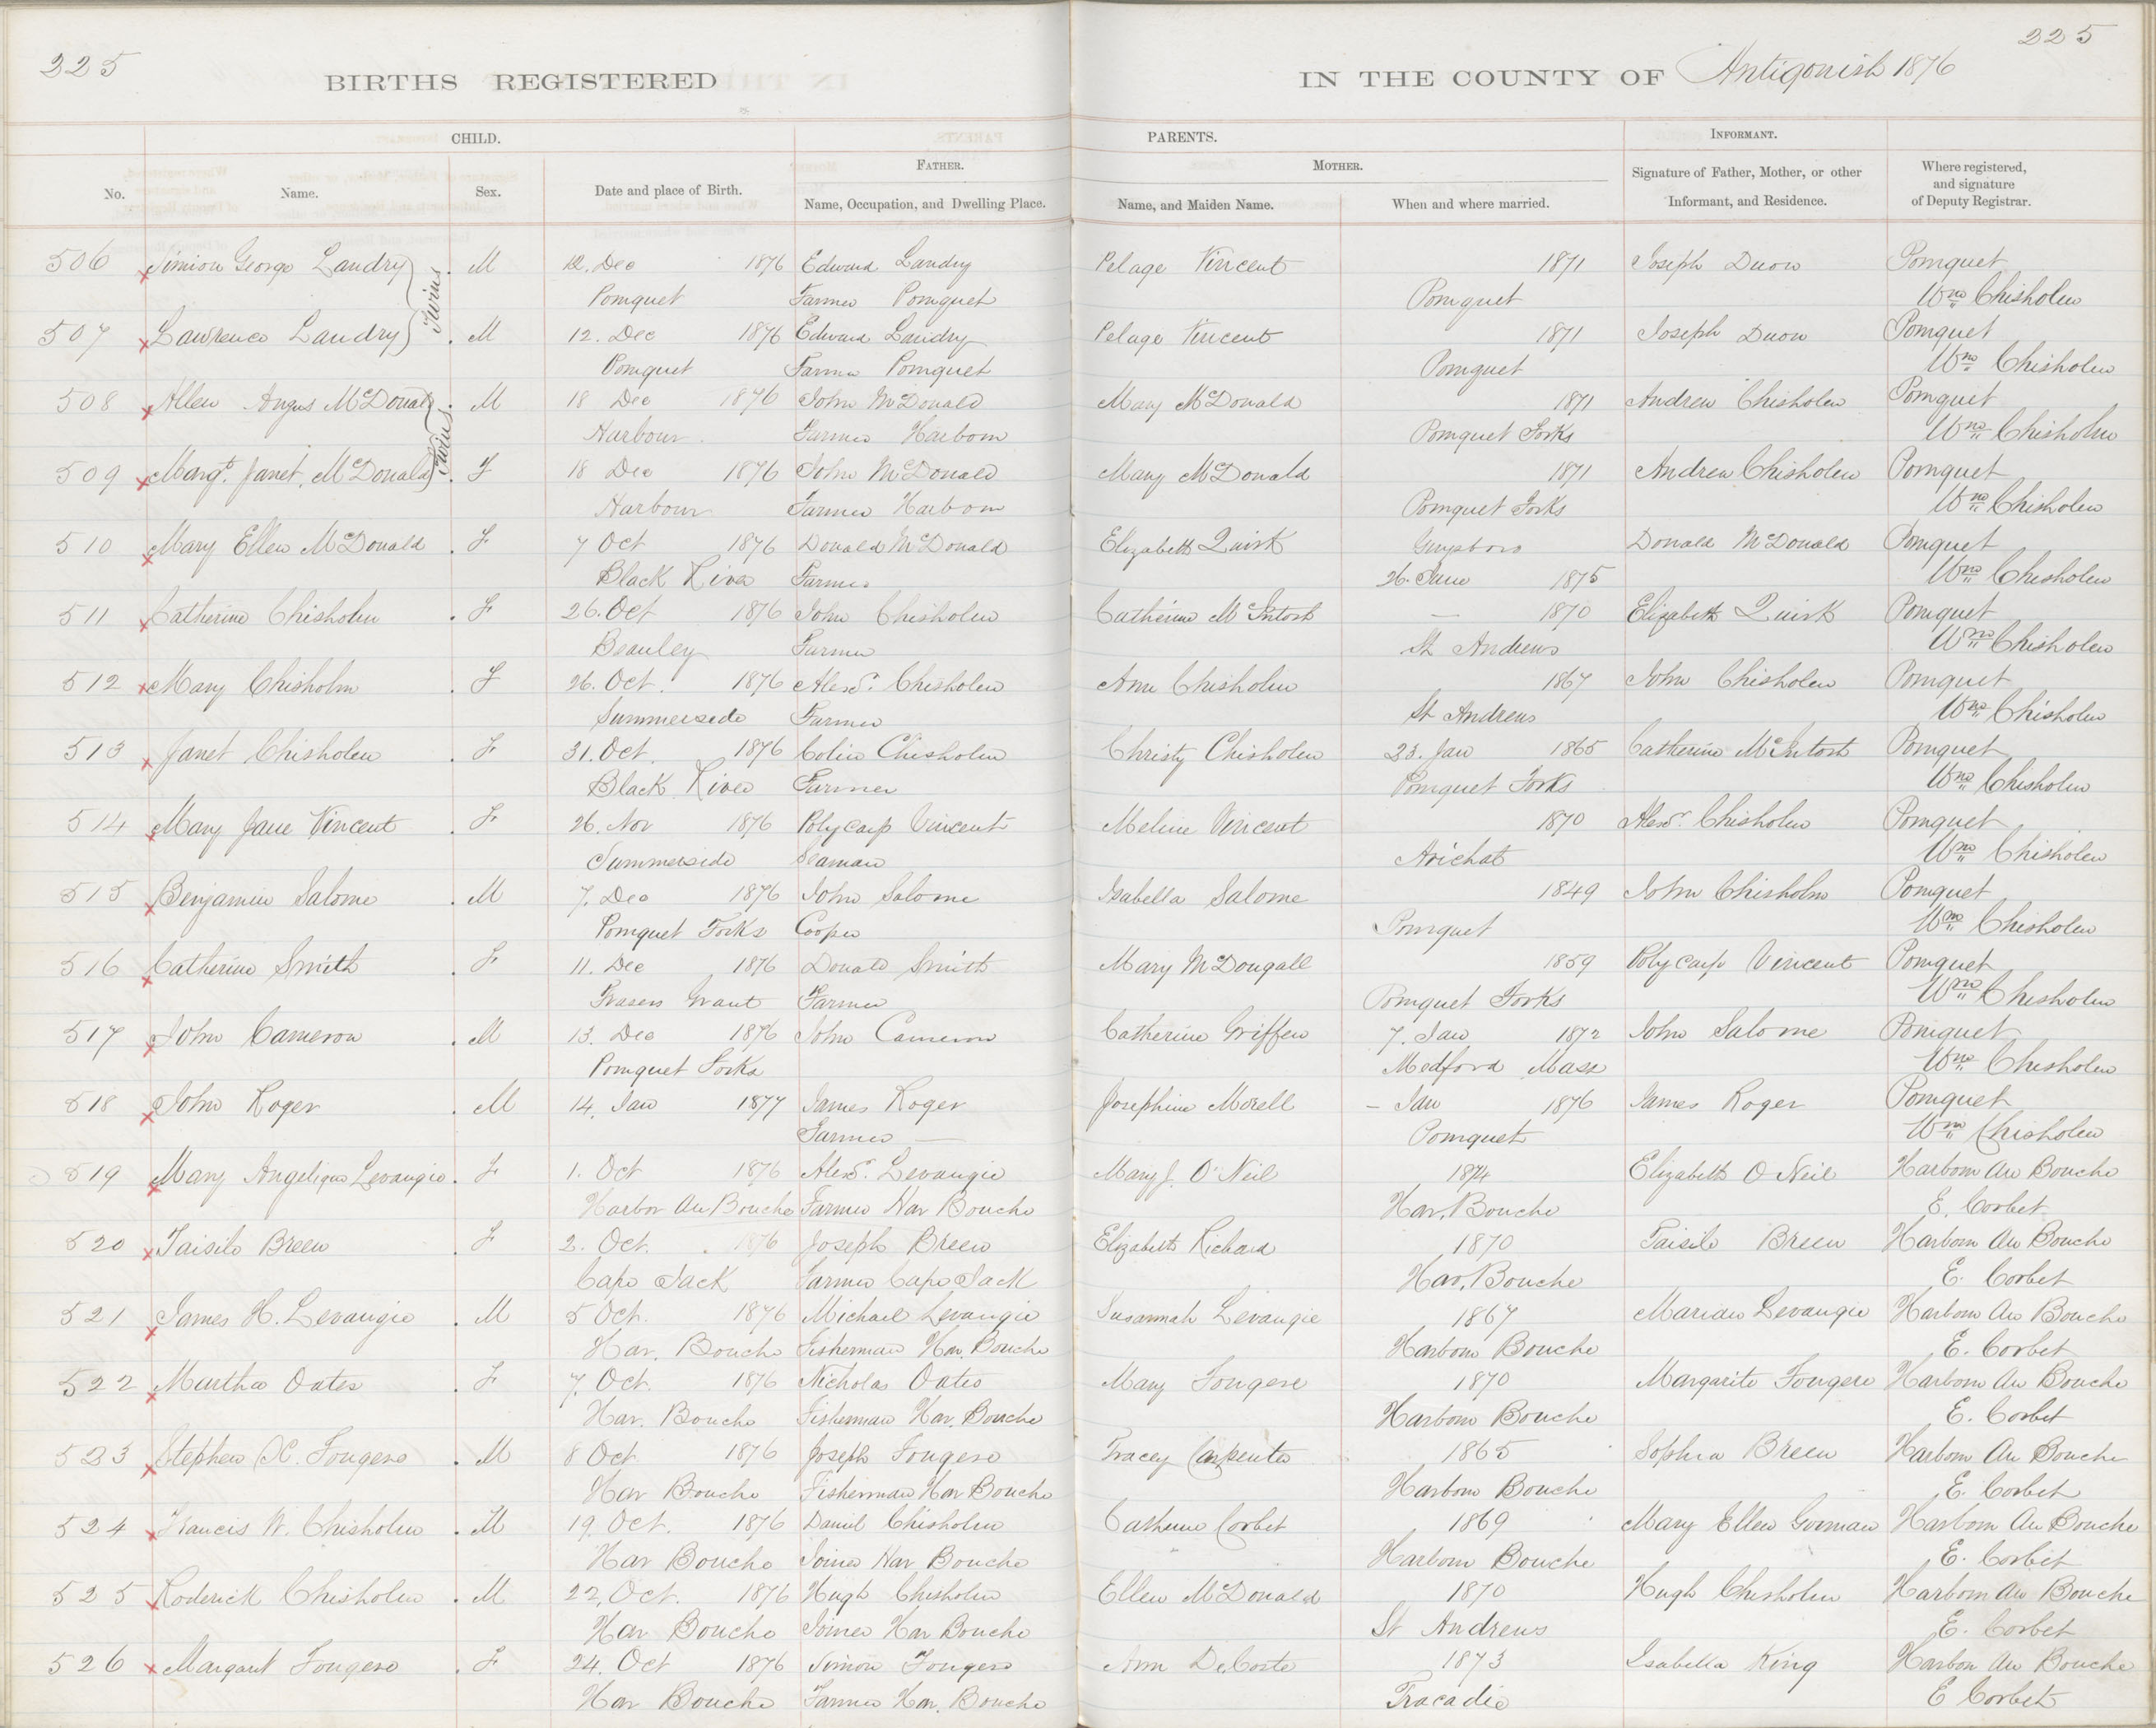 225
225
BIRTHS REGISTERED
IN THE COUNTY OF Antigonish 1876
CHILD.
PARENTS.
INFORMANT.
No.
Name.
Sex.
Date and place of Birth.
FATHER.
Name, Occupation, and Dwelling Place.
MOTHER.
Name, and Maiden Name.
When and where married.
Signature of Father, Mother, or other
Informant, and Residence.
Where registered,
and signature
of Deputy Registrar.
506 Simion George Landry M 12. Dec 1876 Edward Landry Pelage Vincent 1871 Joseph Duon Pomquet
Twins
Pomquet Farmer Pomquet Pomquet Wm Chisholm
507 Lawrence Landry M 12. Dec 1876 Edward Landry Pelage Vincent 1871 Joseph Duon Pomquet
Pomquet Farmer Pomquet Pomquet Wm Chisholm
508 Allen Angus McDonald M 18 Dec 1876 John McDonald Mary McDonald 1871 Andrew Chisholm Pomquet
Twins
Harbour Farmer Harbour Pomquet Forks Wm Chisholm
509 Margt. Janet McDonald F 18 Dec 1876 John McDonald Mary McDonald 1871 Andrew Chisholm Pomquet
Harbour Farmer Harbour Pomquet Forks Wm Chisholm
510 Mary Ellen McDonald F 7 Oct 1876 Donald McDonald Elizabeth Quirk Guysboro Donald McDonald Pomquet
Black River Farmer 26. 1875 Wm Chisholm
511 Catherine Chisholm F 26. Oct 1876 John Chisholm Catherine McIntosh — 1870 Elizabeth Quirk Pomquet
Beauley Farmer St Andrews Wm Chisholm
512 Mary Chisholm F 26. Oct. 1876 Alexr. Chisholm Ann Chisholm 1867 John Chisholm Pomquet
Summerside Farmer St Andrews Wm Chisholm
513 Janet Chisholm F 31. Oct. 1876 Colin Chisholm Christy Chisholm 23. Jan 1865 Catherine McIntosh Pomquet
Black River Farmer Pomquet Forks Wm Chisholm
514 Mary Jane Vincent F 26. Nov 1876 Polycarp Vincent Meline Vincent 1870 Alexr. Chisholm Pomquet
Summerside Seaman Arichat Wm Chisholm
515 Benjamin Salome M 7. Dec 1876 John Salome Isabella Salome 1849 John Chisholm Pomquet
Pomquet Forks Cooper Pomquet Wm Chisholm
516 Catherine Smith F 11. Dec 1876 Donald Smith Mary McDougall 1859 Polycarp Vincent Pomquet
Frasers Grant Farmer Pomquet Forks Wm Chisholm
517 John Cameron M 13. Dec 1876 John Cameron Catherine Griffen 7. Jan 1872 John Salome Pomquet
Pomquet Forks Medford Mass Wm Chisholm
518 John Roger M 14. Jan 1877 James Roger Josephine Morell – Jan 1876 James Roger Pomquet
Farmer — Pomquet Wm Chisholm
519 Mary Angelique Levangie F 1. Oct 1876 Alexr. Levangie Mary J. O'Neil 1874 Elizabeth O Neil Harbour Au Bouche
Harbor Au Bouche Farmer Har Bouche Har. Bouche E. Corbet
520 Taisile Breen F 2. Oct. 1876 Joseph Breen Elizabeth Richard 1870 Taisile Breen Harbour Au Bouche
Cape Jack Farmer Cape Jack Har. Bouche E. Corbet
521 James H. Levangie M 5 Oct. 1876 Michael Levangie Susannah Levangie 1867 Marian Levangie Harbour Au Bouche
Har. Bouche Fisherman Har. Bouche Harbour Bouche E. Corbet
522 Martha Oates F 7. Oct. 1876 Nicholas Oates Mary Fougere 1870 Margarite Fougere Harbour Au Bouche
Har. Bouche Fisherman Har. Bouche Harbour Bouche E. Corbet
523 Stephen C. Fougere M 8 Oct 1876 Joseph Fougere Tracey Carpenter 1865 Sophia Breen Harbour Au Bouche
Har Bouche Fisherman Har Bouche Harbour Bouche E. Corbet
524 Francis W. Chisholm M 19. Oct. 1876 Daniel Chisholm Catherine Corbet 1869 Mary Ellen Gorman Harbour Au Bouche
Har Bouche Joiner Har Bouche Harbour Bouche E. Corbet
525 Roderick Chisholm M 22, Oct. 1876 Hugh Chisholm Ellen McDonald 1870 Hugh Chisholm Harbour Au Bouche
Har Bouche Joiner Har Bouche St Andrews E. Corbet
526 Margaret Fougere F 24. Oct 1876 Simon Fougere Ann DeCoste 1873 Isabella King Harbor Au Bouche
Har Bouche Farmer Har. Bouche Tracadie E Corbet